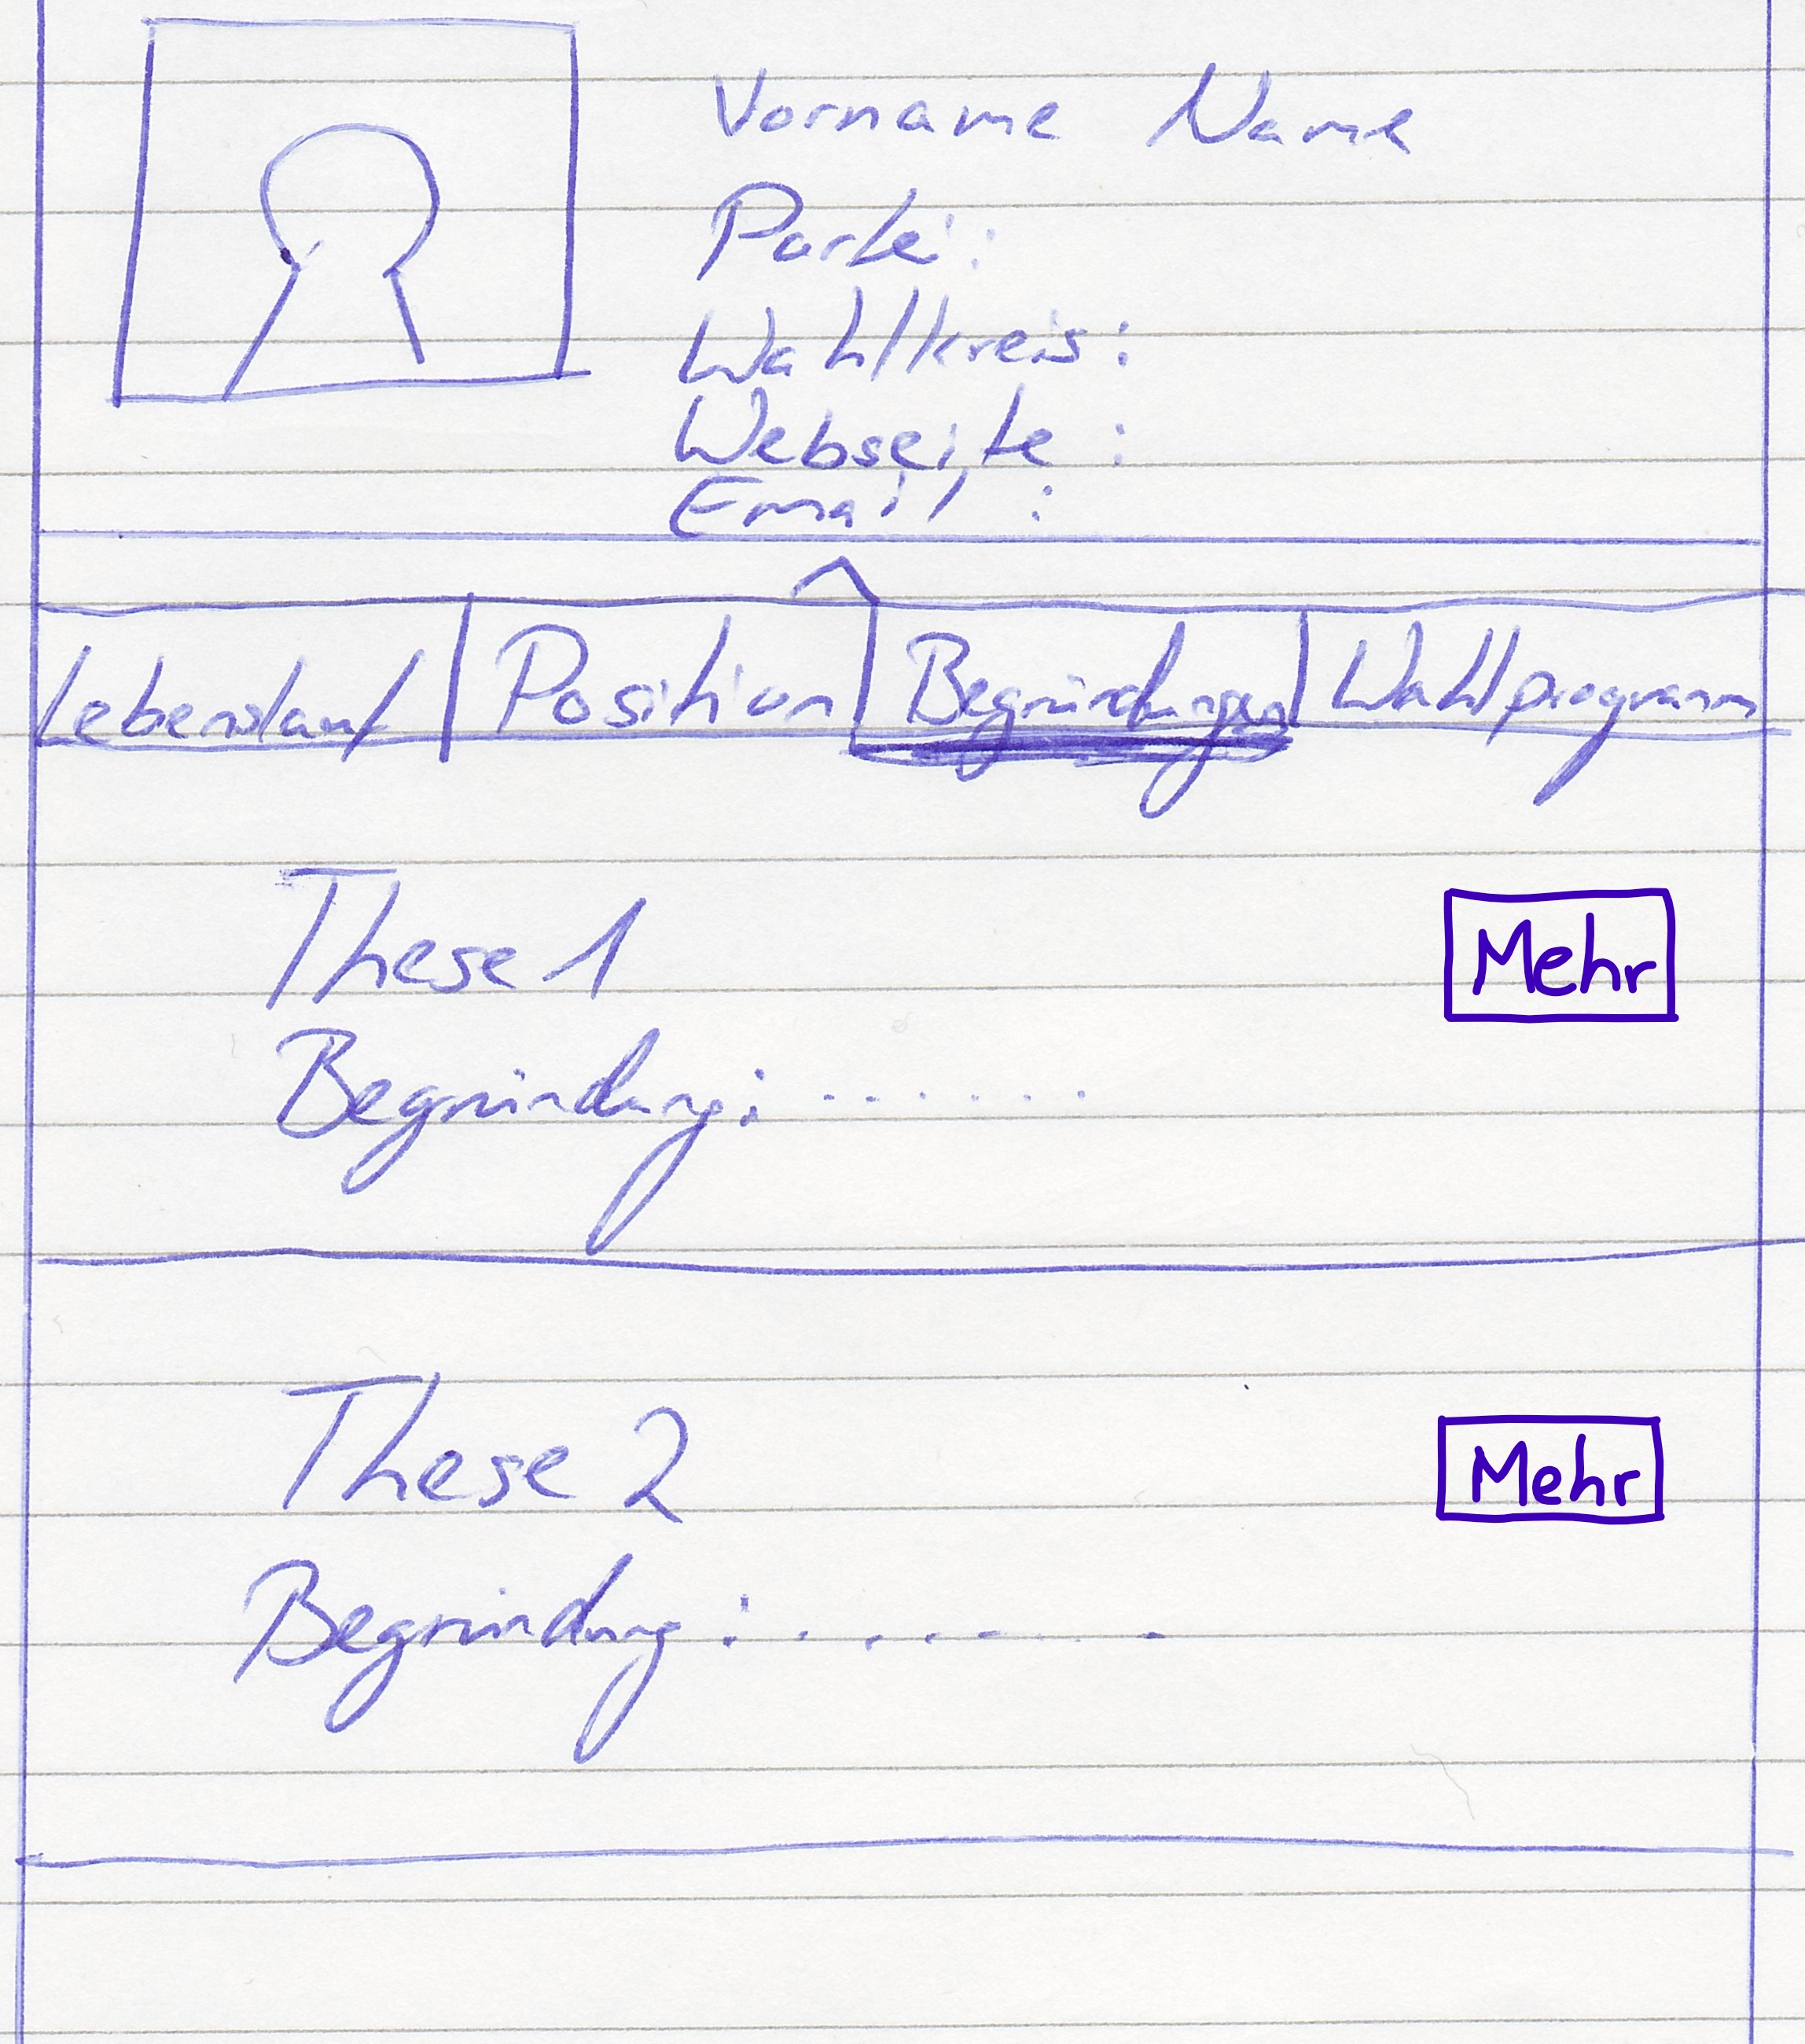 Vorname Name
Partei:
Wahlkreis:
Webseite:
Email:
Lebenslauf Position Begründungen Wahlprogramm
These 1 Mehr
Begründung: . . . . . . .
These 2 Mehr
Begründung: . . . . . . .